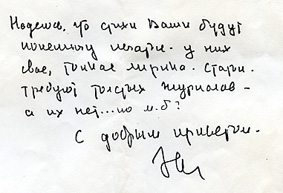 Надеюсь, что стихи Ваши будут
понемногу печатать. у них
своя, тонкая лирика. Стихи
требуют толстых журналов –
а их нет... но м.б?
С добрым приветом.